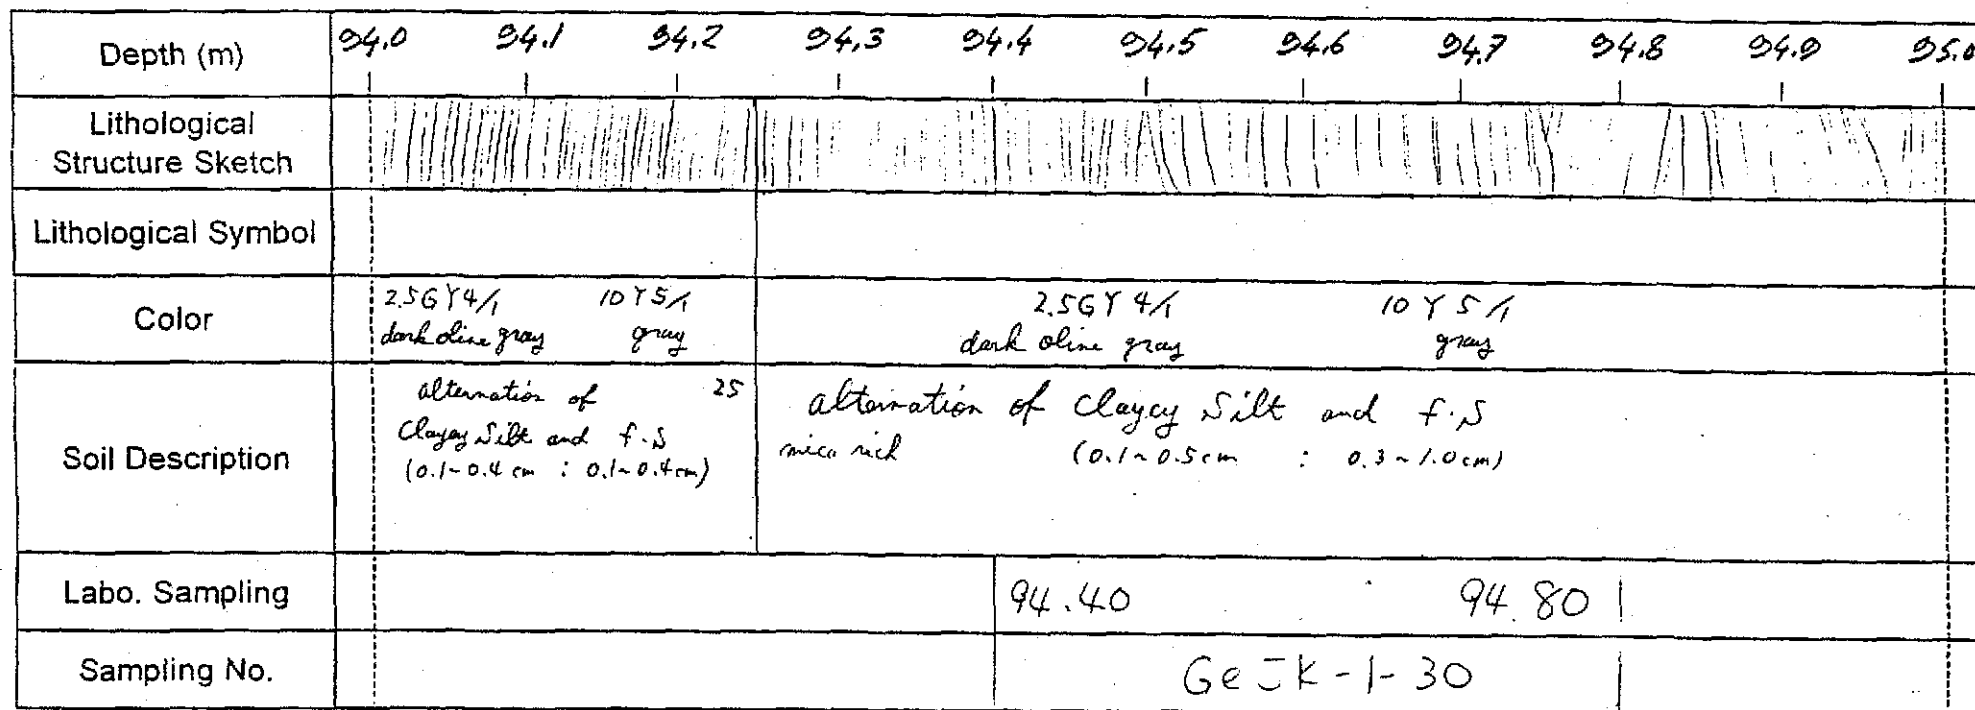 Depth (m) 94.0 94.1 94.2 94.3 94.4 94.5 94.6 94.7 94.8 94.9 95.0
Lithological
Structure Sketch
Lithological Symbol
Color
2.5GY4/1 10Y5/1 2.5GY 4/1 10Y 5/1
dark olive gray gray dark olive gray gray
Soil Description
alternation of 25
Clayey Silt and f.S
(0.1~0.4 cm : 0.1~0.4cm)
alternation of Clayey Silt and f.S
mica rich (0.1~0.5cm : 0.3~1.0cm)
Labo. Sampling 94.40 94.80
Sampling No. GeJK-1-30